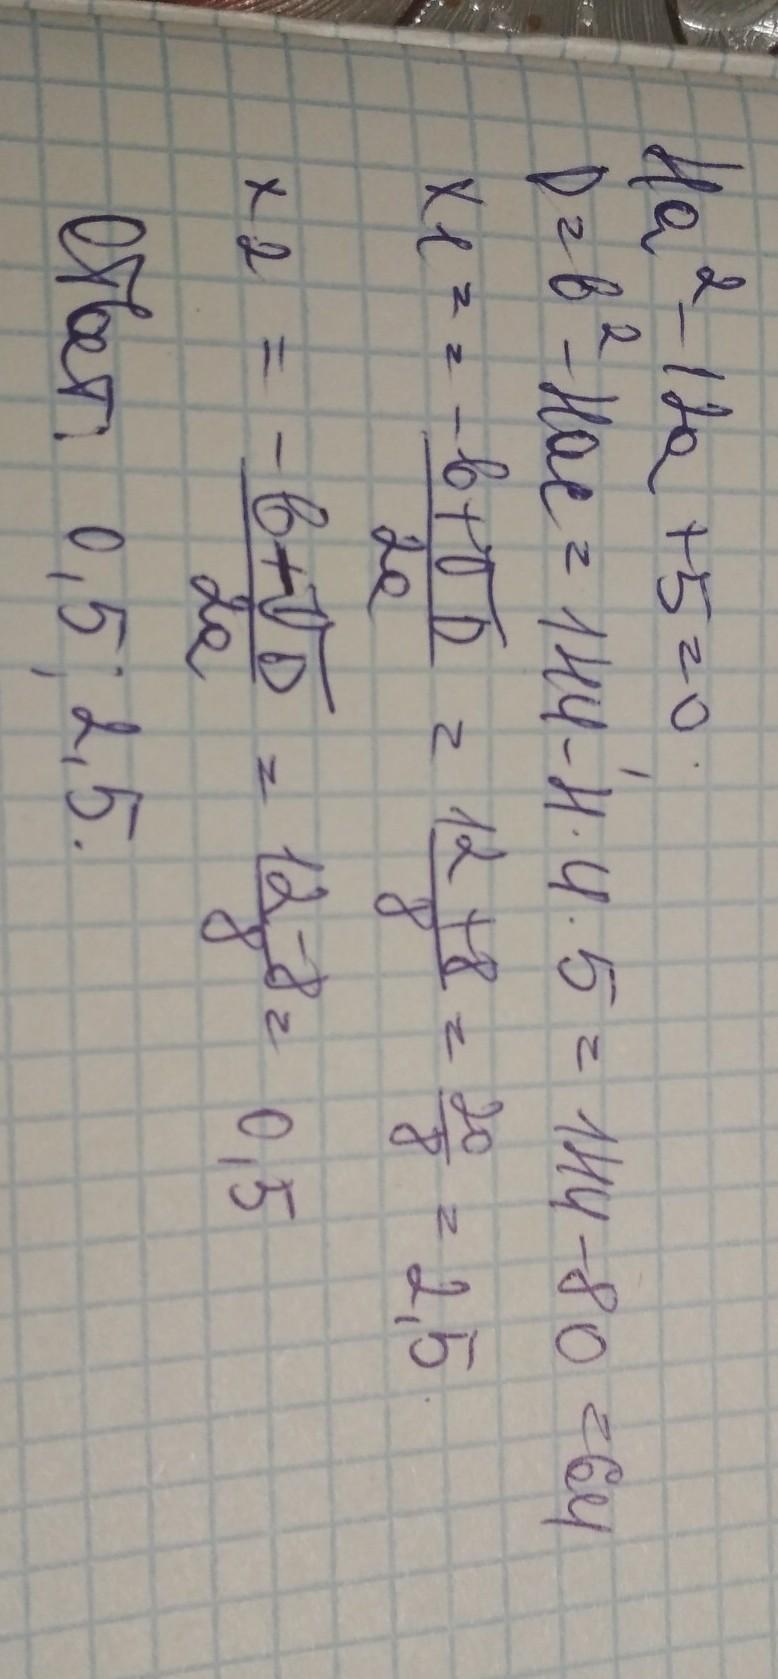 4a² - 12a + 5 = 0.
D = b² - 4ac = 144 - 4 · 4 · 5 = 144 - 80 = 64
x1 = = -b + √D / 2a = 12 + 8 / 8 = 20 / 8 = 2,5
x2 = -b - √D / 2a = 12 - 8 / 8 = 0,5
Ответ: 0,5; 2,5.